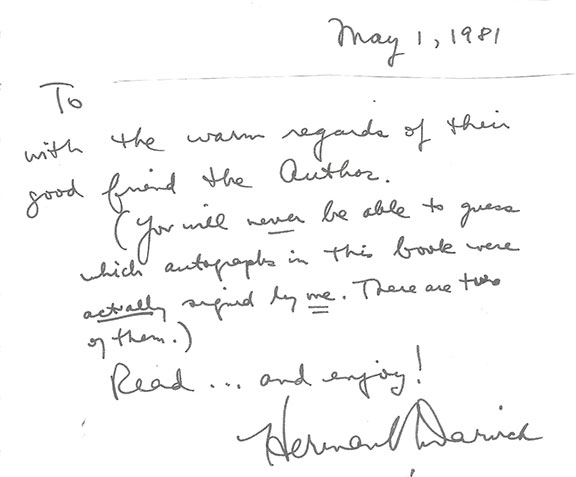 May 1, 1981
To
with the warm regards of their
good friend the Author.
(You will never be able to guess
which autographs in this book were
actually signed by me. There are two
of them.)
Read ... and enjoy!
Herman Darvick